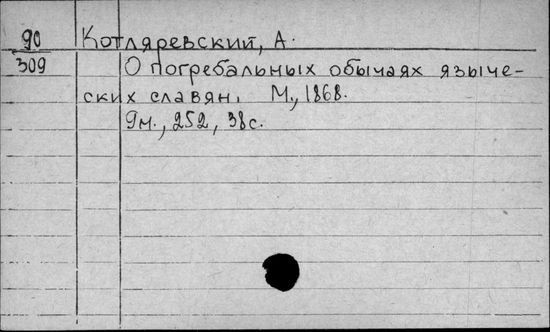 90 Котляревский, А.
309 О погребальных обычаях языче-
ских славян. М., 1868.
9м., 252, 38с.